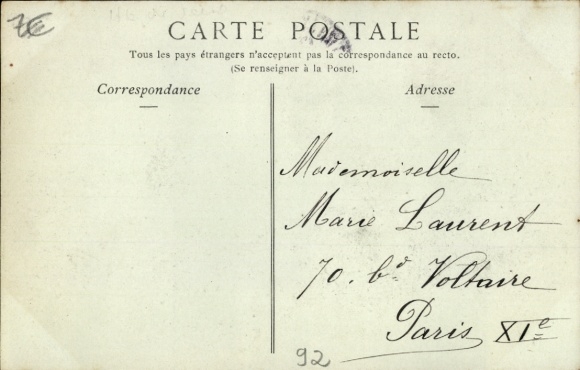 7€
CARTE POSTALE
Tous les pays étrangers n'acceptent pas la correspondance au recto.
(Se renseigner à la Poste).
Correspondance
Adresse
Mademoiselle
Marie Laurent
70. bd Voltaire
Paris XIe
92